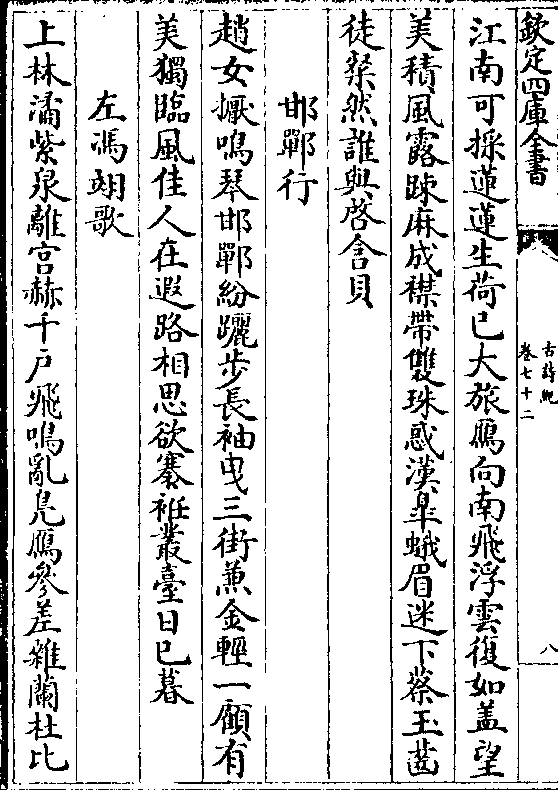 欽定四庫全書
古詩紀
卷七十二
八
江南可採蓮蓮生荷已大旅鴈向南飛浮雲復如盖望
美積風露疎麻成襟帶雙珠惑漢臯蛾眉迷下蔡玉齒
徒粲然誰與啓含貝
邯鄲行
趙女擫鳴琴邯鄲紛躧步長袖曳三街兼金輕一顧有
美獨臨風佳人在遐路相思欲褰袵叢臺日已暮
左馮翊歌
上林潏紫泉離宮赫千户飛鳴亂鳧鴈參差雜蘭杜比